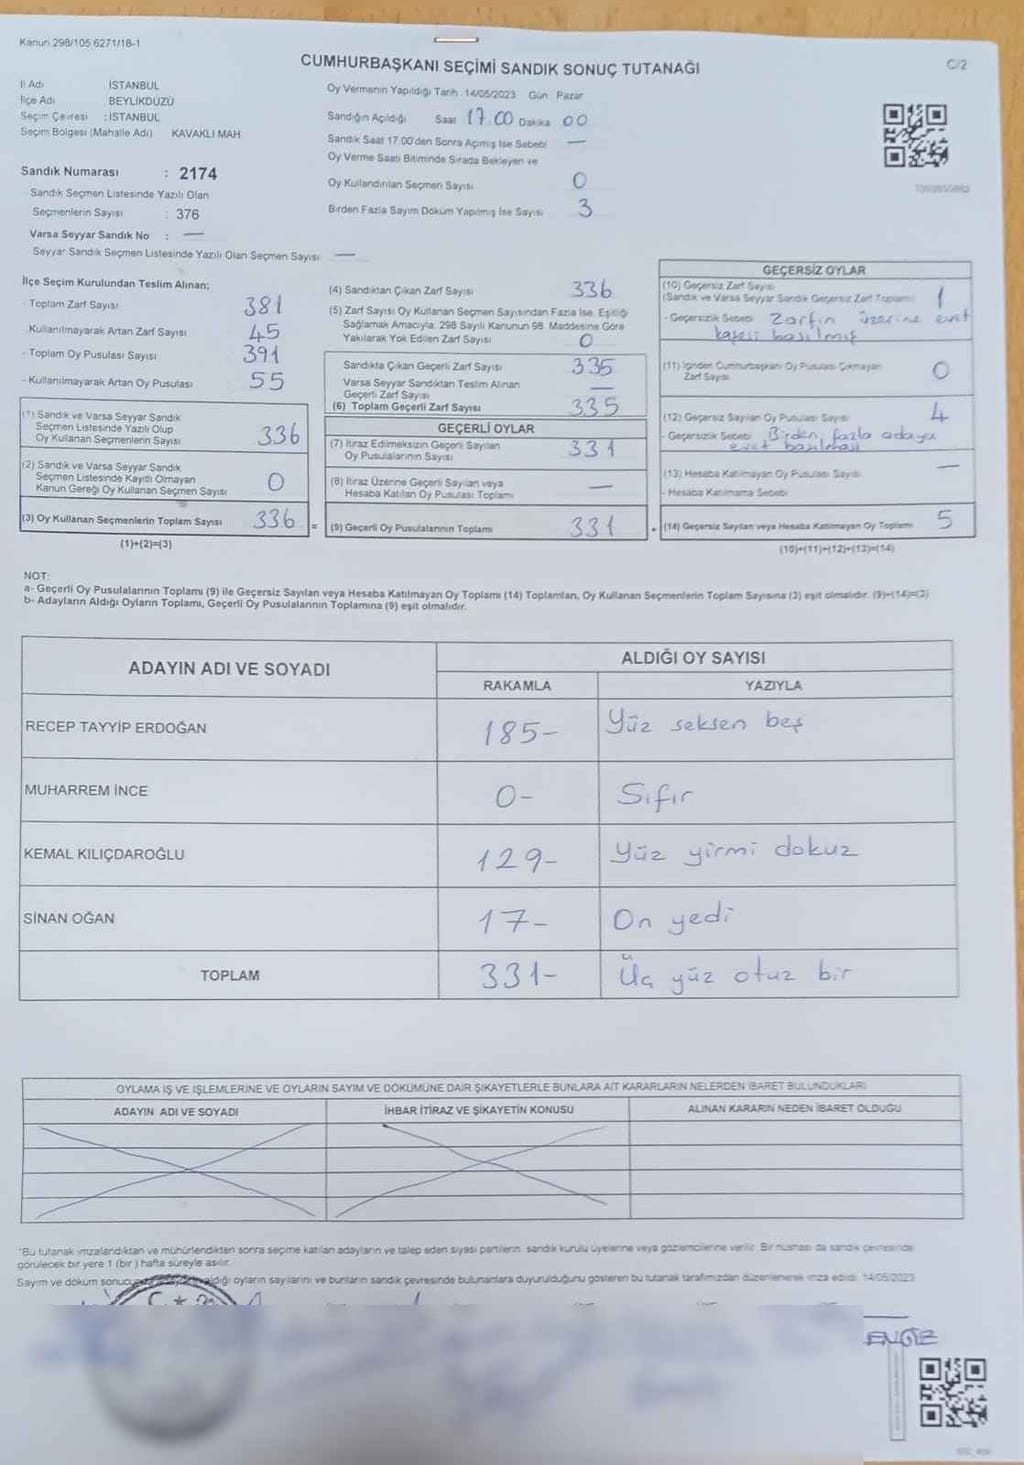 Kanun 298/105 6271/18-1
CUMHURBAŞKANI SEÇİMİ SANDIK SONUÇ TUTANAĞI
C/2
İl Adı : İSTANBUL
İlçe Adı : BEYLİKDÜZÜ
Seçim Çevresi : İSTANBUL
Seçim Bölgesi (Mahalle Adı) KAVAKLI MAH
Sandık Numarası : 2174
Sandık Seçmen Listesinde Yazılı Olan
Seçmenlerin Sayısı : 376
Varsa Seyyar Sandık No : —
Seyyar Sandık Seçmen Listesinde Yazılı Olan Seçmen Sayısı —
Oy Vermenin Yapıldığı Tarih : 14/05/2023 Gün Pazar
Sandığın Açıldığı Saat 17.00 Dakika 00
Sandık Saat 17.00'den Sonra Açımış İse Sebebi —
Oy Verme Saati Bitiminde Sırada Bekleyen ve
Oy Kullandırılan Seçmen Sayısı 0
Birden Fazla Sayım Döküm Yapılmış İse Sayısı 3
İlçe Seçim Kurulundan Teslim Alınan;
- Toplam Zarf Sayısı 381
- Kullanılmayarak Artan Zarf Sayısı 45
- Toplam Oy Pusulası Sayısı 391
- Kullanılmayarak Artan Oy Pusulası 55
(1) Sandık ve Varsa Seyyar Sandık
Seçmen Listesinde Yazılı Olup
Oy Kullanan Seçmenlerin Sayısı 336
(2) Sandık ve Varsa Seyyar Sandık
Seçmen Listesinde Kayıtlı Olmayan
Kanun Gereği Oy Kullanan Seçmen Sayısı 0
(3) Oy Kullanan Seçmenlerin Toplam Sayısı 336
(1)+(2)=(3)
(4) Sandıktan Çıkan Zarf Sayısı 336
(5) Zarf Sayısı Oy Kullanan Seçmen Sayısından Fazla İse, Eşitliği
Sağlamak Amacıyla, 298 Sayılı Kanunun 98. Maddesine Göre
Yakılarak Yok Edilen Zarf Sayısı 0
Sandıkta Çıkan Geçerli Zarf Sayısı 335
Varsa Seyyar Sandıktan Teslim Alınan
Geçerli Zarf Sayısı —
(6) Toplam Geçerli Zarf Sayısı 335
GEÇERLİ OYLAR
(7) İtiraz Edilmeksizin Geçerli Sayılan
Oy Pusulalarının Sayısı 331
(8) İtiraz Üzerine Geçerli Sayılan veya
Hesaba Katılan Oy Pusulası Toplamı —
= (9) Geçerli Oy Pusulalarının Toplamı 331
GEÇERSİZ OYLAR
(10) Geçersiz Zarf Sayısı
(Sandık ve Varsa Seyyar Sandık Geçersiz Zarf Toplamı) 1
- Geçersizlik Sebebi Zarfın üzerine evet
kaşesi basılmış
(11) İçinden Cumhurbaşkanı Oy Pusulası Çıkmayan
Zarf Sayısı 0
(12) Geçersiz Sayılan Oy Pusulası Sayısı 4
- Geçersizlik Sebebi Birden fazla adaya
evet basılması
(13) Hesaba Katılmayan Oy Pusulası Sayısı —
- Hesaba Katılmama Sebebi
+ (14) Geçersiz Sayılan veya Hesaba Katılmayan Oy Toplamı 5
(10)+(11)+(12)+(13)=(14)
NOT:
a- Geçerli Oy Pusulalarının Toplamı (9) ile Geçersiz Sayılan veya Hesaba Katılmayan Oy Toplamı (14) Toplamları, Oy Kullanan Seçmenlerin Toplam Sayısına (3) eşit olmalıdır. (9)+(14)=(3)
b- Adayların Aldığı Oyların Toplamı, Geçerli Oy Pusulalarının Toplamına (9) eşit olmalıdır.
ADAYIN ADI VE SOYADI
ALDIĞI OY SAYISI
RAKAMLA YAZIYLA
RECEP TAYYİP ERDOĞAN 185- Yüz seksen beş
MUHARREM İNCE 0- Sıfır
KEMAL KILIÇDAROĞLU 129- Yüz yirmi dokuz
SİNAN OĞAN 17- On yedi
TOPLAM 331- Üç yüz otuz bir
OYLAMA İŞ VE İŞLEMLERİNE VE OYLARIN SAYIM VE DÖKÜMÜNE DAİR ŞİKAYETLERLE BUNLARA AİT KARARLARIN NELERDEN İBARET BULUNDUKLARI
ADAYIN ADI VE SOYADI İHBAR İTİRAZ VE ŞİKAYETİN KONUSU ALINAN KARARIN NEDEN İBARET OLDUĞU
*Bu tutanak imzalandıktan ve mühürlendikten sonra seçime katılan adayların ve talep eden siyasi partilerin sandık kurulu üyelerine veya gözlemcilerine verilir. Bir nüshası da sandık çevresinde
görülecek bir yere 1 (bir ) hafta süreyle asılır.
Sayım ve döküm sonucu adayların aldığı oyların sayılarını ve bunların sandık çevresinde bulunanlara duyurulduğunu gösteren bu tutanak tarafımızdan düzenlenerek imza edildi. 14/05/2023